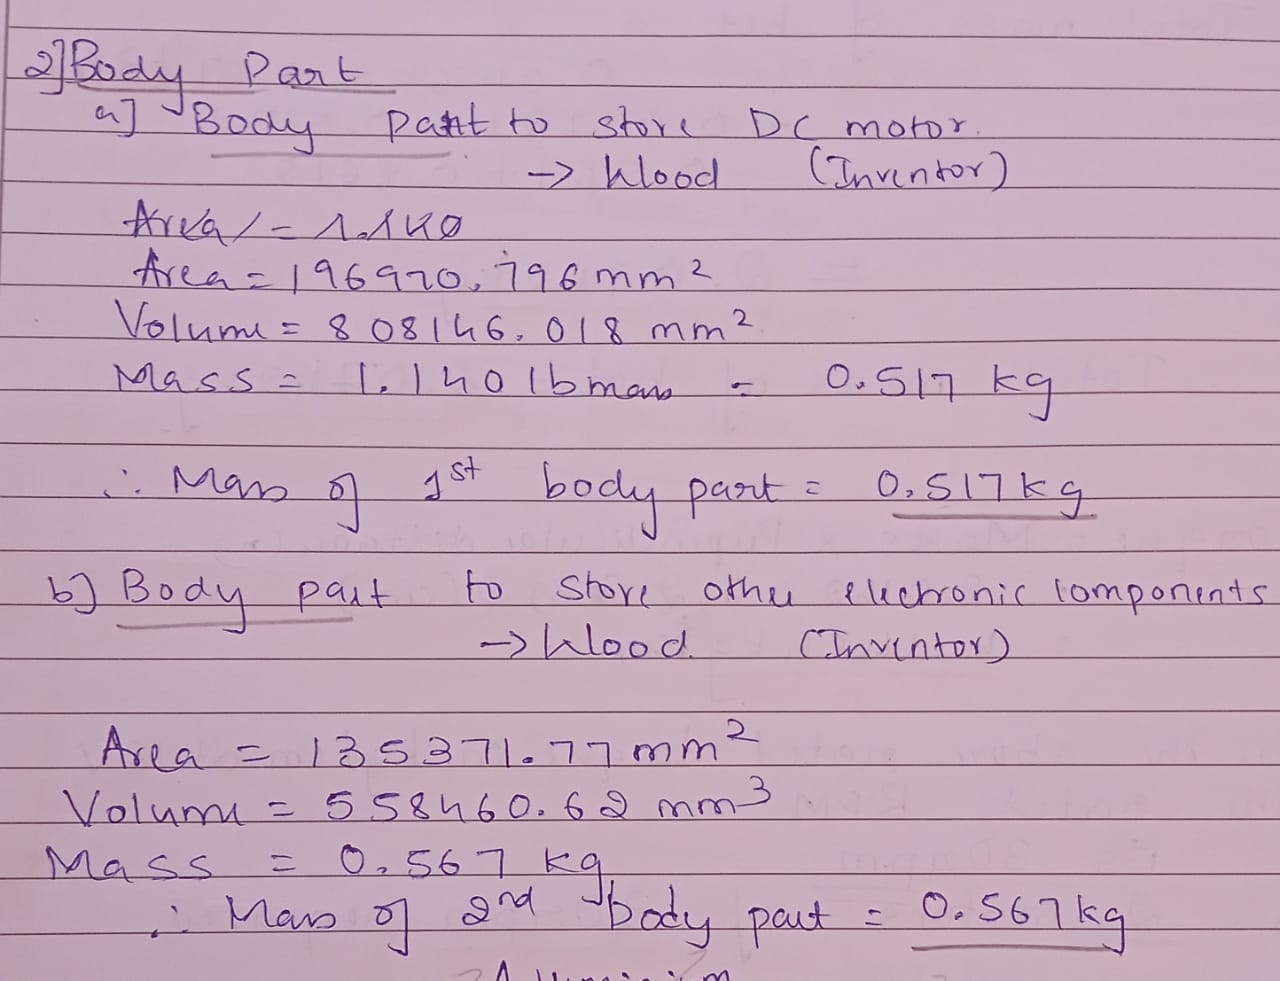 2] Body Part
a] Body part to store DC motor.
→ Wood (Inventor)
Area = 1.140
Area = 196970.796 mm²
Volume = 808146.018 mm²
Mass = 1.140 lbmass = 0.517 kg
∴ Mass of 1st body part = 0.517 kg
b] Body part to store other electronic components
→ Wood. (Inventor)
Area = 135371.77 mm²
Volume = 558460.62 mm³
Mass = 0.567 kg
∴ Mass of 2nd body part = 0.567 kg